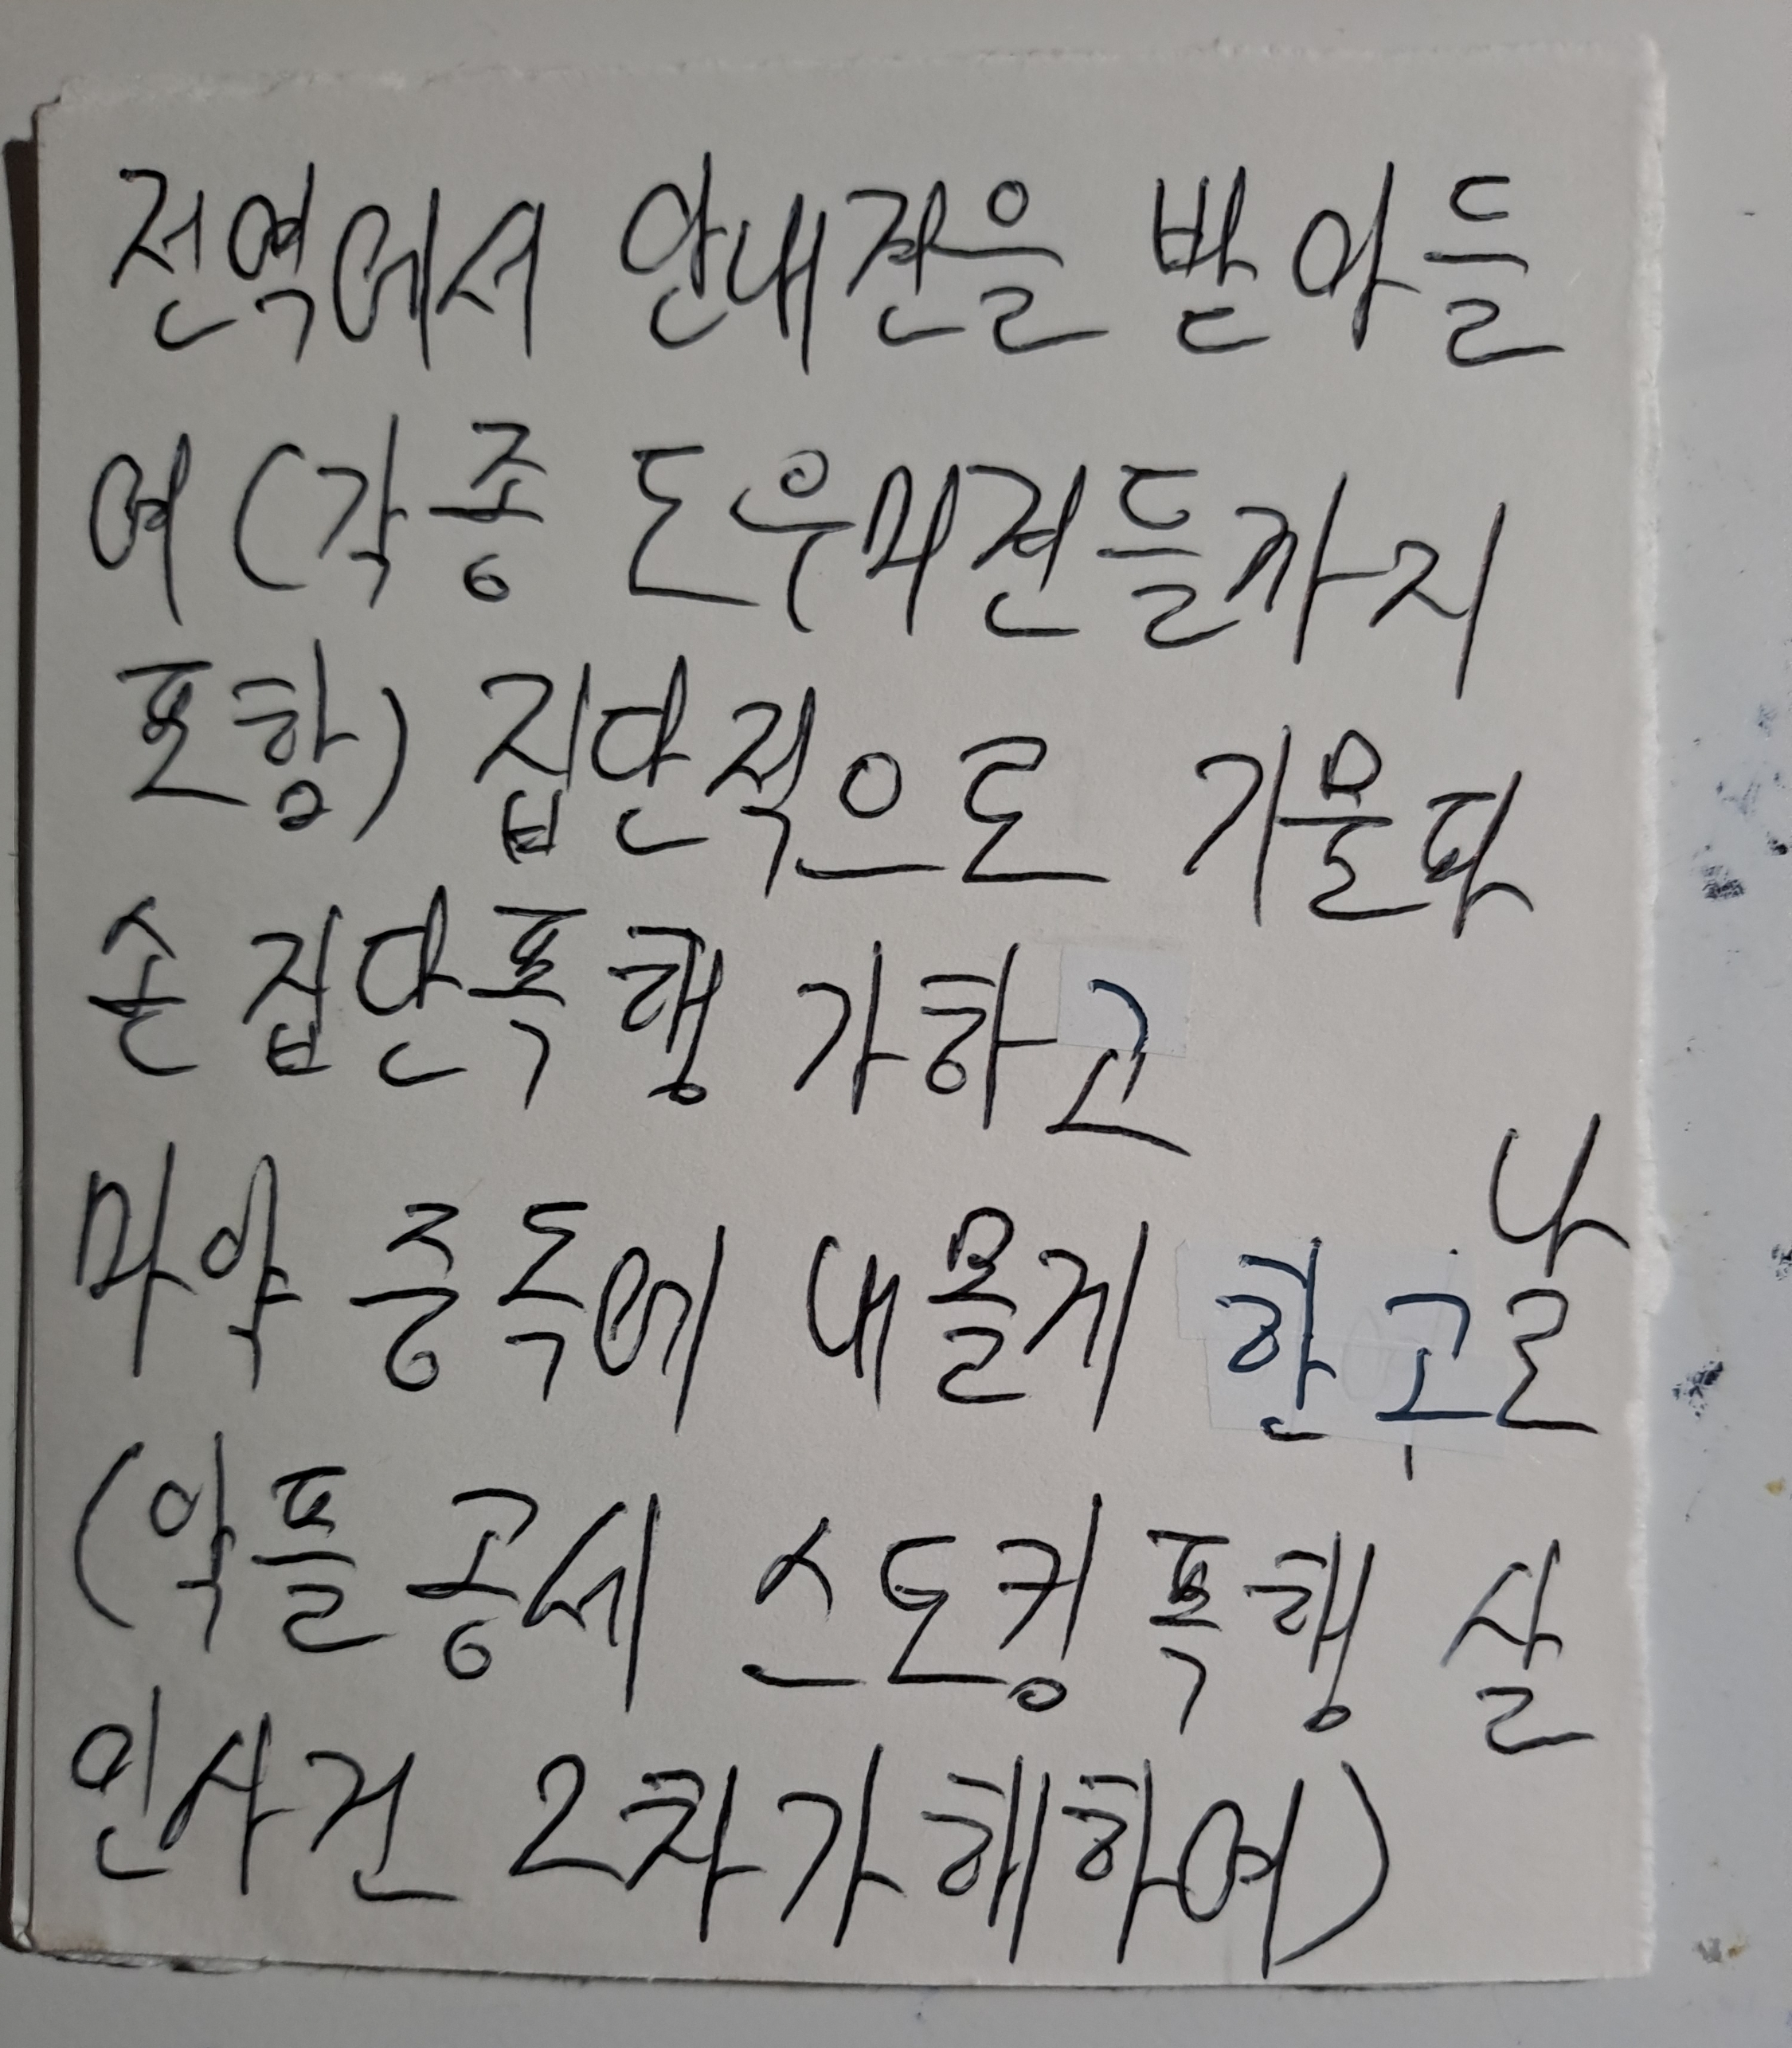 전역에서 안내견을 받아들
여 (각종 도우미견들까지
포함) 집단적으로 기물파
손 집단폭행 가하고
마약 중독에 내몰게 한 고로
나
(악플 공세 스토킹 폭행 살
인사건 2차가해하여)